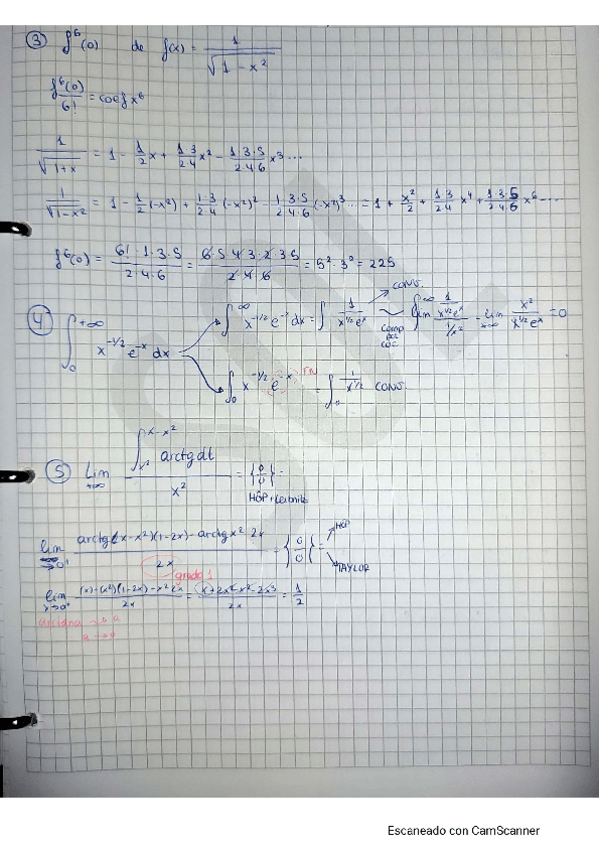 ③ f⁶(0) de f(x) = 1/√(1 - x²)
f⁶(0)/6! = coef x⁶
1/√(1+x) = 1 - 1/2 x + 1·3/2·4 x² - 1·3·5/2·4·6 x³ ...
1/√(1-x²) = 1 - 1/2 (-x²) + 1·3/2·4 (-x²)² - 1·3·5/2·4·6 (-x²)³ ... = 1 + x²/2 + 1·3/2·4 x⁴ + 1·3·5/2·4·6 x⁶ ...
f⁶(0) = 6!·1·3·5/2·4·6 = 6·5·4·3·2·3·5/2·4·6 = 5²·3² = 225
④ ∫₀^+∞ x^-1/2 e^-x dx
∫^∞ x^-1/2 e^-x dx = ∫ 1/x^1/2 e^x CONV. ~ Comp por coc. lim 1/x^1/2 e^x / 1/x² = lim x→∞ x²/x^1/2 e^x = 0
∫₀ x^-1/2 e^-x = ∫₀ 1/x^1/2 CONV.
⑤ Lim →0 ∫x²^x-x² arctg dt / x² = {0/0} =
HôP + Leibniz
lim x→0⁺ arctg(x-x²)(1-2x) - arctg x² 2x / 2x = {0/0} = HôP
TAYLOR
grado 1
lim x→0⁺ (x)-(x²)(1-2x) - x² 2x / 2x = x+2x²-x²-2x³ / 2x = 1/2
a → 0
Escaneado con CamScanner